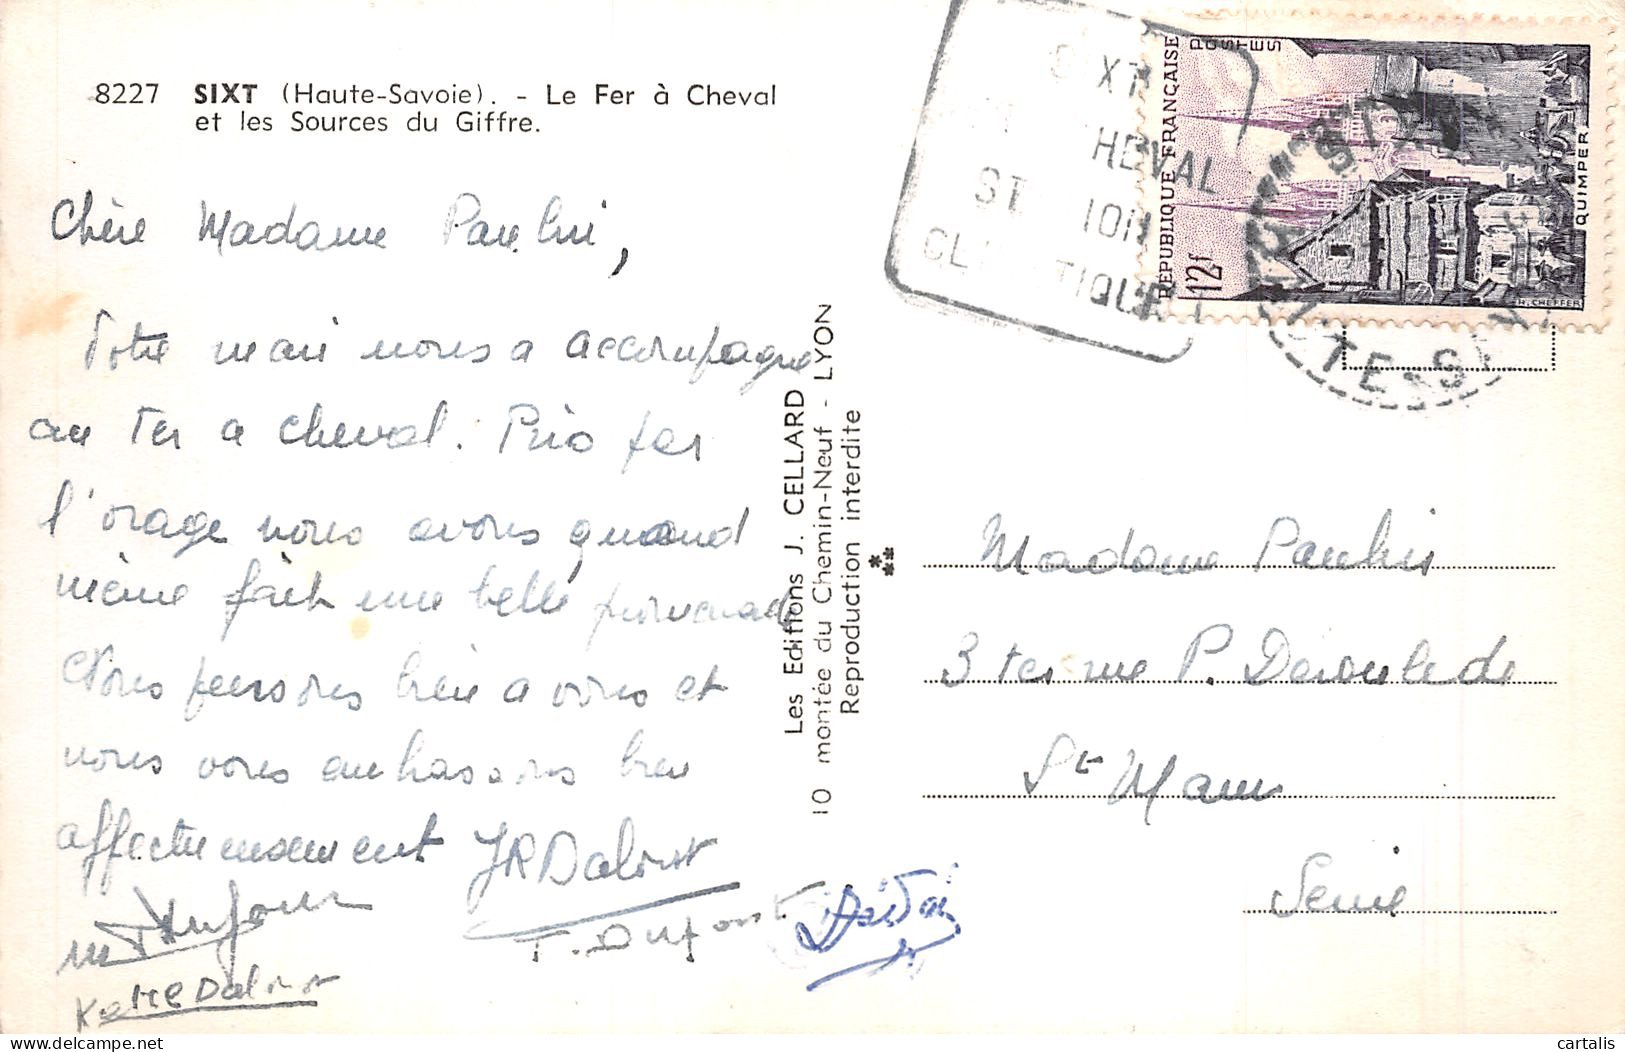 8227 SIXT (Haute-Savoie). - Le Fer à Cheval
et les Sources du Giffre.
Chère Madame Paulin,
Votre mari nous a accompagné
au Fer a cheval. Pris par
l'orage nous avons quand
même fait une belle promenade
Nous pensons bien a vous et
nous vous embrassons bien
affectueusement JR Dalinot
T. Dupont
Les Editions J. CELLARD
10 montée du Chemin-Neuf - LYON
Reproduction interdite
SIXT
HEVAL
ST ION
CL TIQUE
REPUBLIQUE FRANÇAISE
POSTES
12f
QUIMPER
R. CHEFFER
HTE-SAV
Madame Paulin
3 ter rue P. Deroulede
St Maur
Seine
cartalis